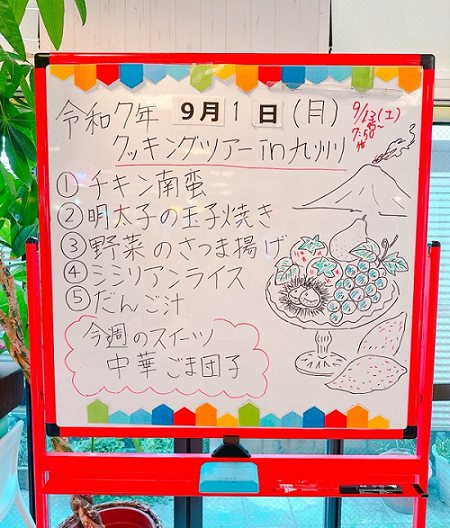 令和7年 9月1日(月)
9/13(土)
クッキングツアーin九州
①チキン南蛮
②明太子の玉子焼き
③野菜のさつま揚げ
④シシリアンライス
⑤だんご汁
今週のスイーツ
中華ごま団子